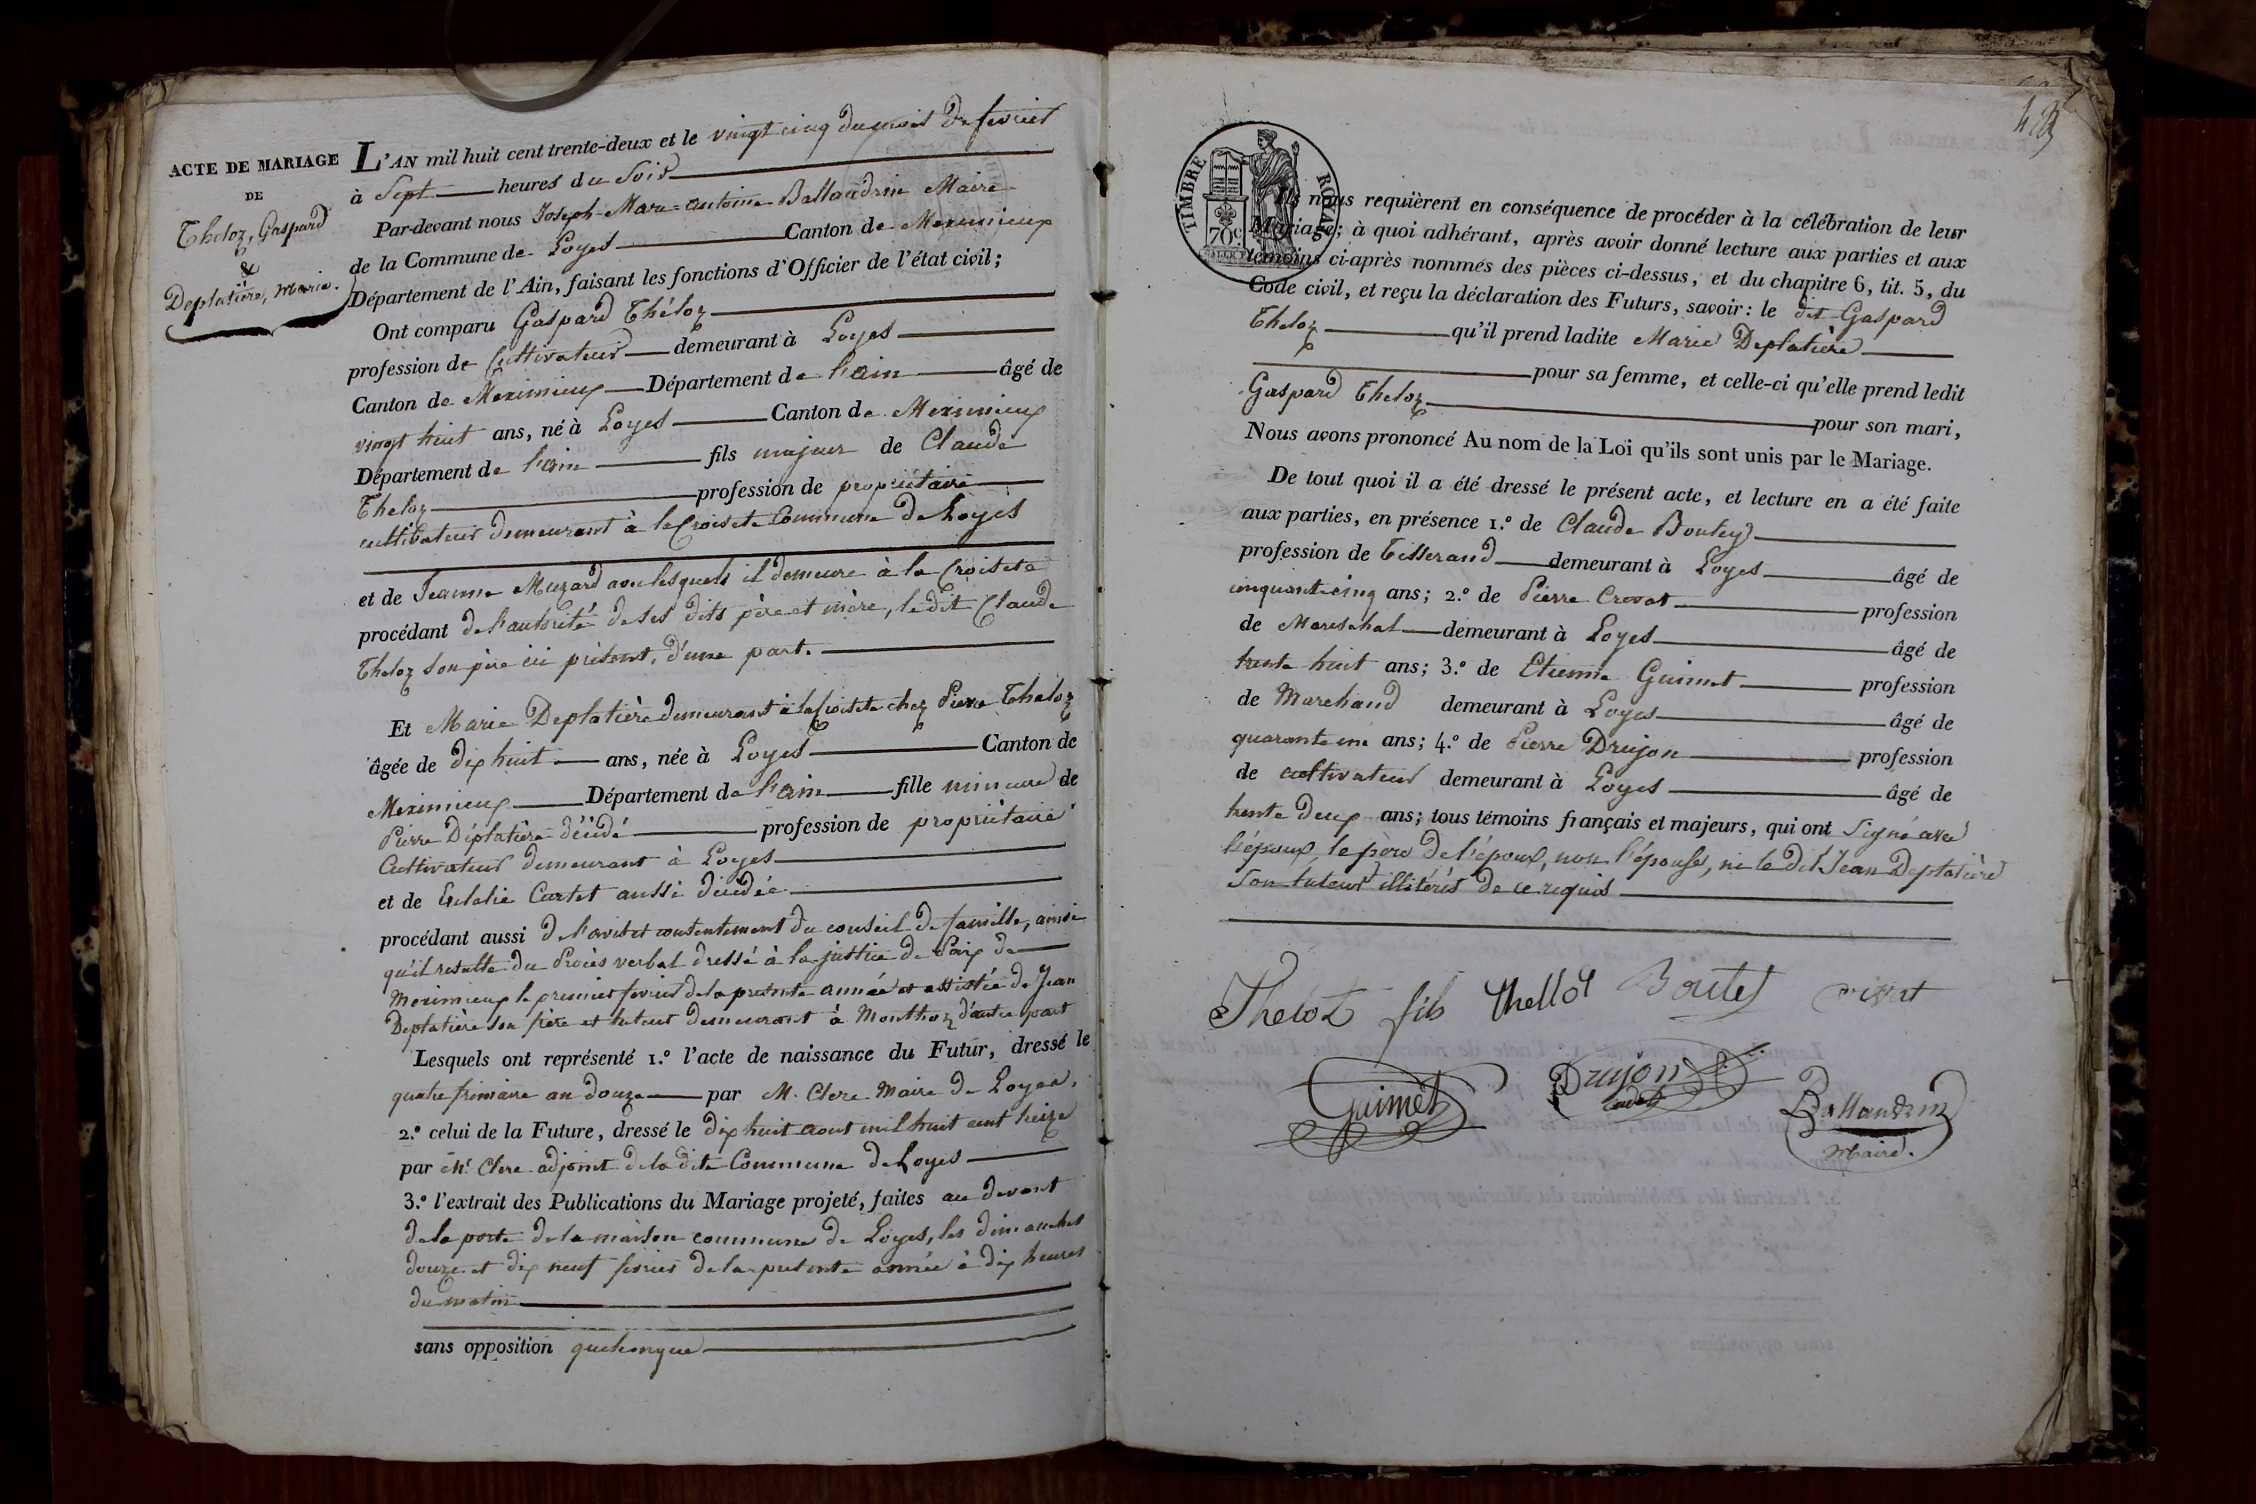 ACTE DE MARIAGE
DE
Theloz, Gaspard
&
Deplatière, Marie.
L'AN mil huit cent trente-deux et le vingt cinq du mois de fevrier
à Sept heures du Soir
Par-devant nous Joseph-Marie-antoine Ballandrin Maire
de la Commune de Loyes Canton de Meximieux
Département de l'Ain, faisant les fonctions d'Officier de l'état civil;
Ont comparu Gaspard Théloz
profession de Cultivateur demeurant à Loyes
Canton de Meximieux Département de l'ain âgé de
vingt huit ans, né à Loyes Canton de Meximieux
Département de l'ain fils majeur de Claude
Theloz profession de propriétaire
cultivateur demeurant à la Croisete Commune de Loyes
et de Jeanne Muzard avec lesquels il demeure à la Croisete
procédant de l'autorité de ses dits père et mère, le dit Claude
Theloz son père ici présent, d'une part.
Et Marie Deplatière demeurant à la Croisete chez Pierre Theloz
âgée de dix huit ans, née à Loyes Canton de
Meximieux Département de l'ain fille mineure de
Pierre Déplatière décédé profession de propriétaire
Cultivateur demeurant à Loyes
et de Eulalie Cartet aussi décédée
procédant aussi de l'avis et consentement du conseil de famille, ainsi
qu'il resulte du Procès verbal dressé à la justice de Paix de
Meximieux le premier fevrier de la presente année et assistée de Jean
Deplatière son frère et tuteur demeurant à Monthoz d'autre part
Lesquels ont représenté 1.º l'acte de naissance du Futur, dressé le
quatre frimaire an douze par M. Clerc Maire de Loyes,
2.º celui de la Future, dressé le dix huit aout mil huit cent treize
par Mr. Clerc adjoint de la dite Commune de Loyes
3.º l'extrait des Publications du Mariage projeté, faites au devant
de la porte de la maison commune de Loyes, les dimanches
douze et dix neuf fevrier de la presente année à dix heures
du matin
sans opposition quelconque
TIMBRE ROYAL
70c
Ils nous requièrent en conséquence de procéder à la célébration de leur
Mariage; à quoi adhérant, après avoir donné lecture aux parties et aux
témoins ci-après nommés des pièces ci-dessus, et du chapitre 6, tit. 5, du
Code civil, et reçu la déclaration des Futurs, savoir: le dit Gaspard
Theloz qu'il prend ladite Marie Deplatière
pour sa femme, et celle-ci qu'elle prend ledit
Gaspard Theloz
pour son mari,
Nous avons prononcé Au nom de la Loi qu'ils sont unis par le Mariage.
De tout quoi il a été dressé le présent acte, et lecture en a été faite
aux parties, en présence 1.º de Claude Boutey
profession de Tisserand demeurant à Loyes âgé de
cinquante cinq ans; 2.º de Pierre Crovat profession
de Mareschal demeurant à Loyes âgé de
trente huit ans; 3.º de Etienne Guimet profession
de Marchand demeurant à Loyes âgé de
quarante un ans; 4.º de Pierre Drujon profession
de cultivateur demeurant à Loyes âgé de
trente deux ans; tous témoins français et majeurs, qui ont Signé avec
l'époux, le père de l'époux, non l'épouse, ni le dit Jean Deplatière
son tuteur illitérés de ce requis
Theloz fils Thelloz Boutey
Guimet Drujon
cadet Ballandrin
Maire.